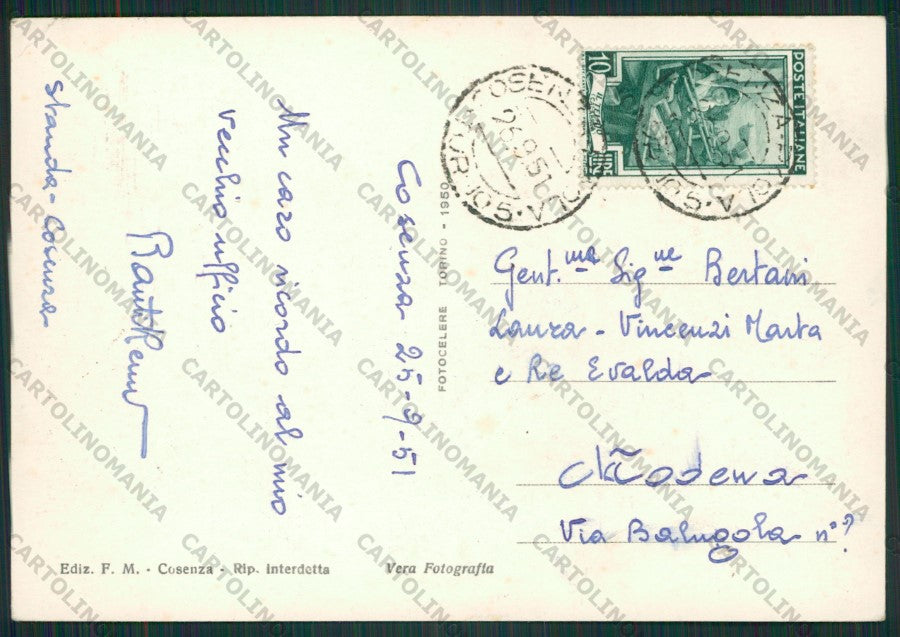 Cosenza 25-9-51
Un caro ricordo al mio
vecchio ufficio
Standa - Cosenza
FOTOCELERE TORINO - 1950
10
POSTE ITALIANE
COSENZA
26.9.51
Gent.me Sig.ne Bertani
Laura - Vincenzi Marta
e Re Evalda
Modena
Via Balugola n°?
Ediz. F. M. - Cosenza - Rip. Interdetta
Vera Fotografia
CARTOLINOMANIA